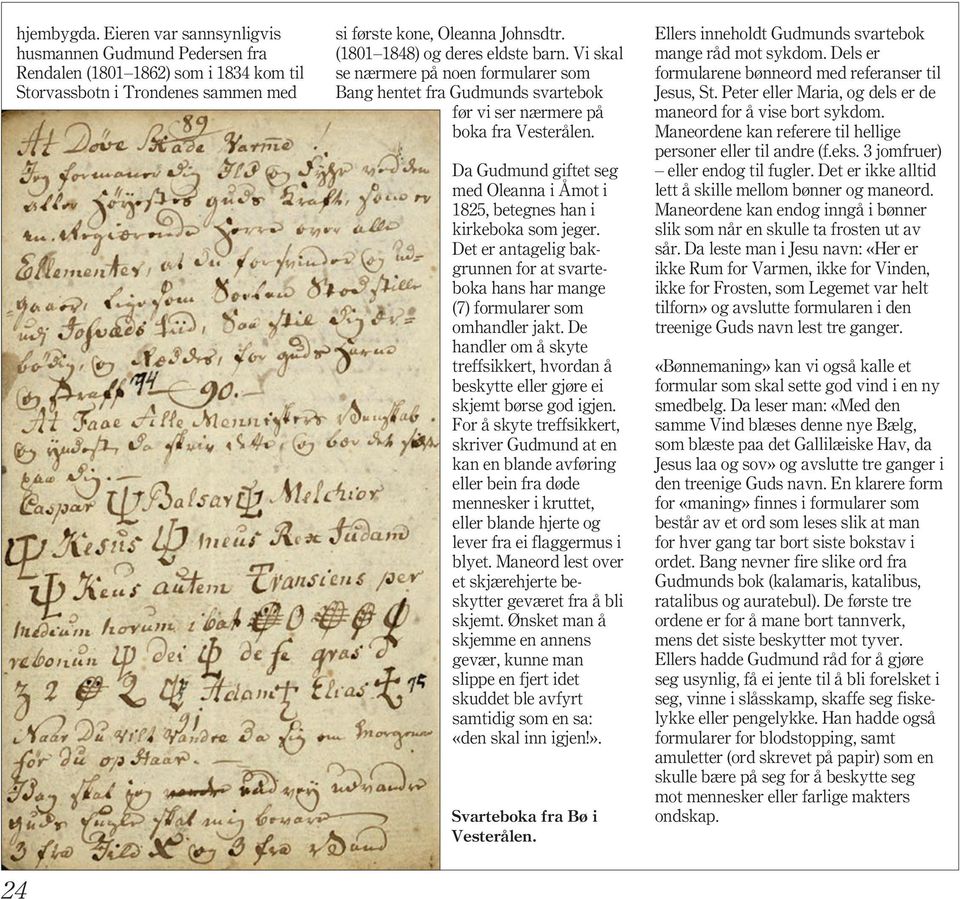 hjembygda. Eieren var sannsynligvis
husmannen Gudmund Pedersen fra
Rendalen (1801–1862) som i 1834 kom til
Storvassbotn i Trondenes sammen med
89
At Døve Skade Varme
Jeg formaner dig Ild og
aller Høyestes guds Kraft, som er
en Regierende Herre over alle
Ellementer, at du forsvinder og ud-
gaaer, ligesom Soelen Stod stille
udj Josvæds tiid, Saa stil dig ær-
bødig, og Ræddes, for guds
og Straff 94 — 90. —
At Faae Alle Menniskers Venskab
og yndest, da skriv dette, og bær det
paa dig. —
Caspar Balsar Melchior
Kesus meus Rex Judam
Keus autem Transiens per
medium horum ibat
rebonun dei de fe gras
3 2 Q Adamet Elias 75
91
Naar Du Vilt Vandre da sig om Morgenen
før du op Staar. —
Idag skal jeg ud udvandre
guds Engle skal mig bevare —
3 fra Jild X og 3 fra Vand
si første kone, Oleanna Johnsdtr.
(1801–1848) og deres eldste barn. Vi skal
se nærmere på noen formularer som
Bang hentet fra Gudmunds svartebok
før vi ser nærmere på
boka fra Vesterålen.
Da Gudmund giftet seg
med Oleanna i Åmot i
1825, betegnes han i
kirkeboka som jeger.
Det er antagelig bak-
grunnen for at svarte-
boka hans har mange
(7) formularer som
omhandler jakt. De
handler om å skyte
treffsikkert, hvordan å
beskytte eller gjøre ei
skjemt børse god igjen.
For å skyte treffsikkert,
skriver Gudmund at en
kan en blande avføring
eller bein fra døde
mennesker i kruttet,
eller blande hjerte og
lever fra ei flaggermus i
blyet. Maneord lest over
et skjærehjerte be-
skytter geværet fra å bli
skjemt. Ønsket man å
skjemme en annens
gevær, kunne man
slippe en fjert idet
skuddet ble avfyrt
samtidig som en sa:
«den skal inn igjen!».
Svarteboka fra Bø i
Vesterålen.
Ellers inneholdt Gudmunds svartebok
mange råd mot sykdom. Dels er
formularene bønneord med referanser til
Jesus, St. Peter eller Maria, og dels er de
maneord for å vise bort sykdom.
Maneordene kan referere til hellige
personer eller til andre (f.eks. 3 jomfruer)
– eller endog til fugler. Det er ikke alltid
lett å skille mellom bønner og maneord.
Maneordene kan endog inngå i bønner
slik som når en skulle ta frosten ut av
sår. Da leste man i Jesu navn: «Her er
ikke Rum for Varmen, ikke for Vinden,
ikke for Frosten, som Legemet var helt
tilforn» og avslutte formularen i den
treenige Guds navn lest tre ganger.
«Bønnemaning» kan vi også kalle et
formular som skal sette god vind i en ny
smedbelg. Da leser man: «Med den
samme Vind blæses denne nye Bælg,
som blæste paa det Gallilæiske Hav, da
Jesus laa og sov» og avslutte tre ganger i
den treenige Guds navn. En klarere form
for «maning» finnes i formularer som
består av et ord som leses slik at man
for hver gang tar bort siste bokstav i
ordet. Bang nevner fire slike ord fra
Gudmunds bok (kalamaris, katalibus,
ratalibus og auratebul). De første tre
ordene er for å mane bort tannverk,
mens det siste beskytter mot tyver.
Ellers hadde Gudmund råd for å gjøre
seg usynlig, få ei jente til å bli forelsket i
seg, vinne i slåsskamp, skaffe seg fiske-
lykke eller pengelykke. Han hadde også
formularer for blodstopping, samt
amuletter (ord skrevet på papir) som en
skulle bære på seg for å beskytte seg
mot mennesker eller farlige makters
ondskap.
24